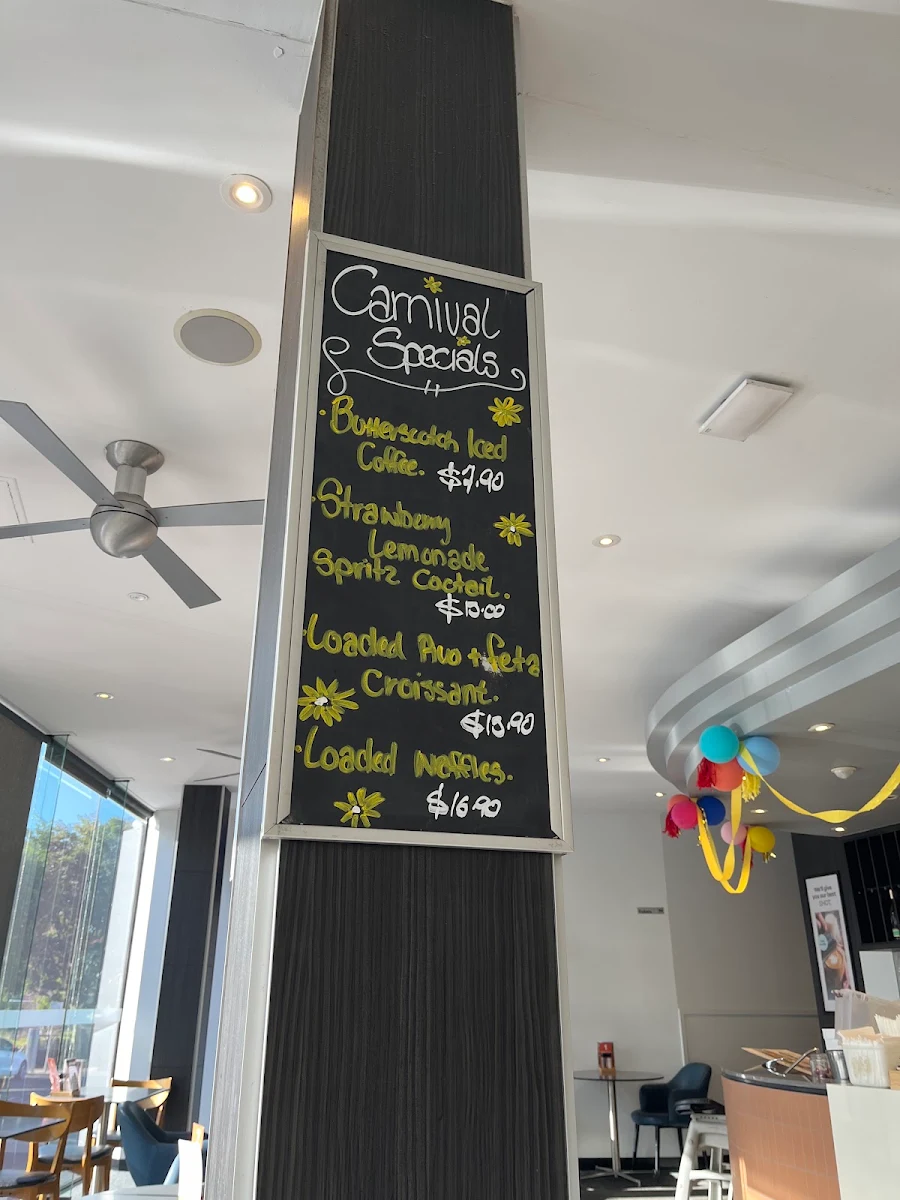 Carnival
Specials
Butterscotch Iced
Coffee. $7.90
Strawberry
Lemonade
Spritz Coctail.
Loaded Avo + feta
Croissant.
$15.90
Loaded Waffles.
$16.90
We'll give
you our best
SHOT.